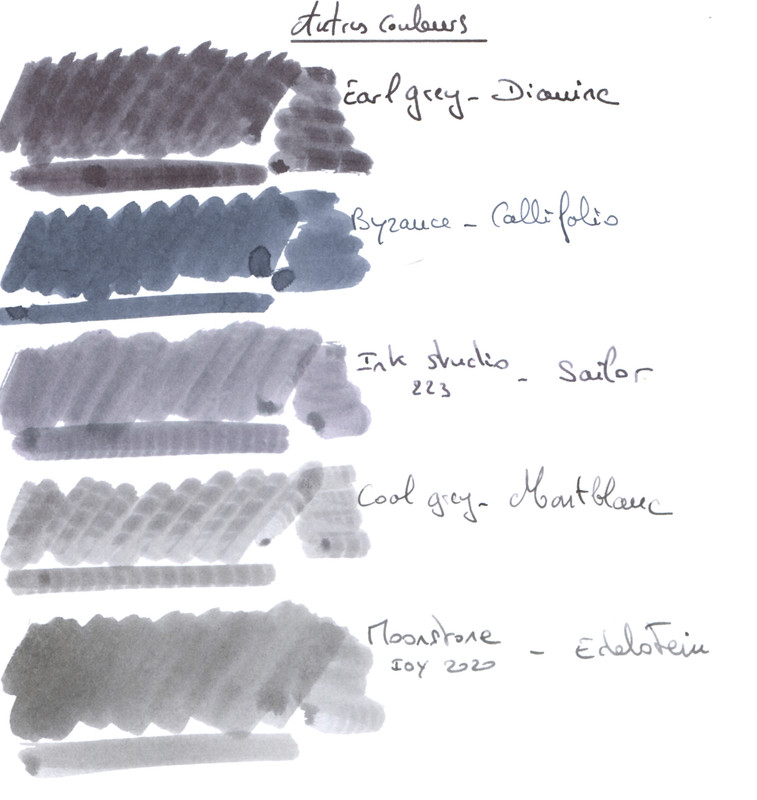 Autres couleurs
Earl grey - Diamine
Byzance - Callifolio
Ink studio - Sailor
223
Cool grey - Montblanc
Moonstone - Edelstein
IOY 2020